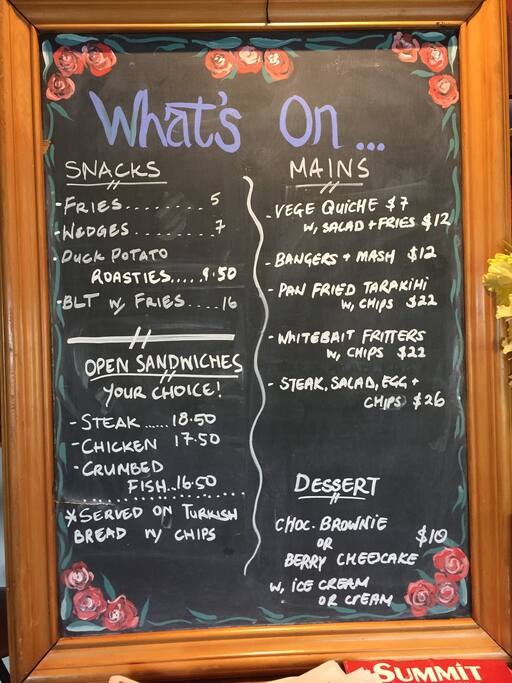 What's On...
SNACKS
-FRIES......... 5
-WEDGES........ 7
-DUCK POTATO
ROASTIES.....9.50
-BLT w/ FRIES....16
OPEN SANDWICHES
YOUR CHOICE!
- STEAK...... 18.50
- CHICKEN 17.50
- CRUMBED
FISH..16.50
*SERVED ON TURKISH
BREAD w/ CHIPS
MAINS
- VEGE QUICHE $7
w, SALAD + FRIES $12
- BANGERS + MASH $12
- PAN FRIED TARAKIHI
w, CHIPS $22
- WHITEBAIT FRITTERS
w, CHIPS $22
- STEAK, SALAD, EGG +
CHIPS $26
DESSERT
CHOC. BROWNIE
OR $10
BERRY CHEECAKE
w, ICE CREAM
OR CREAM
SUMMIT